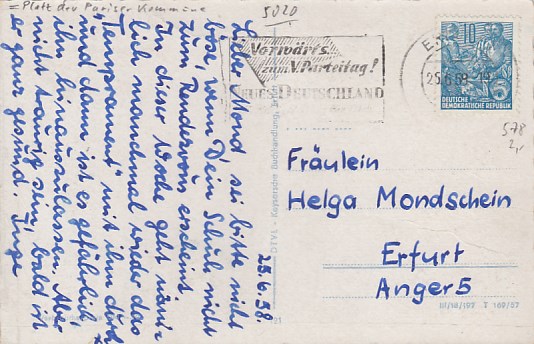 = Platz der Pariser Kommune
5020
Vorwärts
zum V. Parteitag!
NEUES DEUTSCHLAND
25.6.58
10
DEUTSCHE
DEMOKRATISCHE REPUBLIK
578
2,-
Lieber Mond, sei bitte nicht
böse, wenn Dein Schuh nicht
zum Rendezvous erscheint.
In dieser Woche geht näm-
lich manchmal wieder das
"Temperament" mit ihm durch
und dann ist es gefährlich
ihn hinauszulassen. Aber
nicht traurig sein, bald ist
er ganz gesund. Inge
25.6.58.
DTVL - Keysersche Buchhandlung,
Fräulein
Helga Mondschein
Erfurt
Anger 5
III/18/197 T 169/57